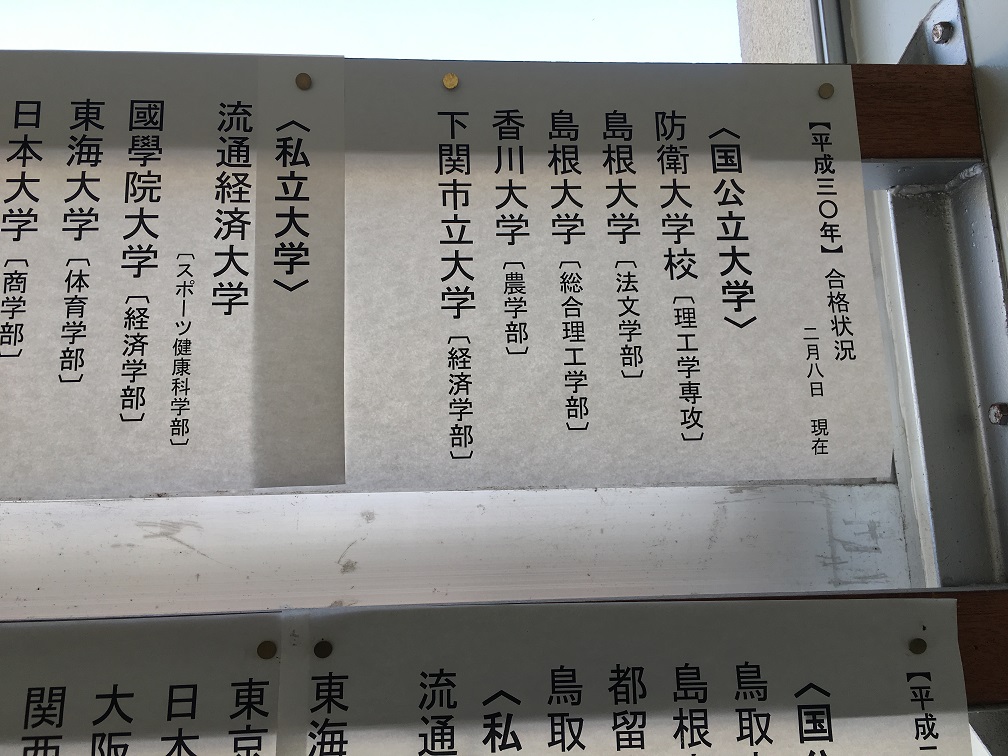 【平成三〇年】 合格状況
二月八日 現在
〈国公立大学〉
防衛大学校〔理工学専攻〕
島根大学〔法文学部〕
島根大学〔総合理工学部〕
香川大学〔農学部〕
下関市立大学〔経済学部〕
〈私立大学〉
流通経済大学
〔スポーツ健康科学部〕
國學院大学〔経済学部〕
東海大学〔体育学部〕
日本大学〔商学部〕
【平成
〈国公
鳥取
島根
都留
鳥取
〈私
流通
東海
東京
日本
大阪
関西